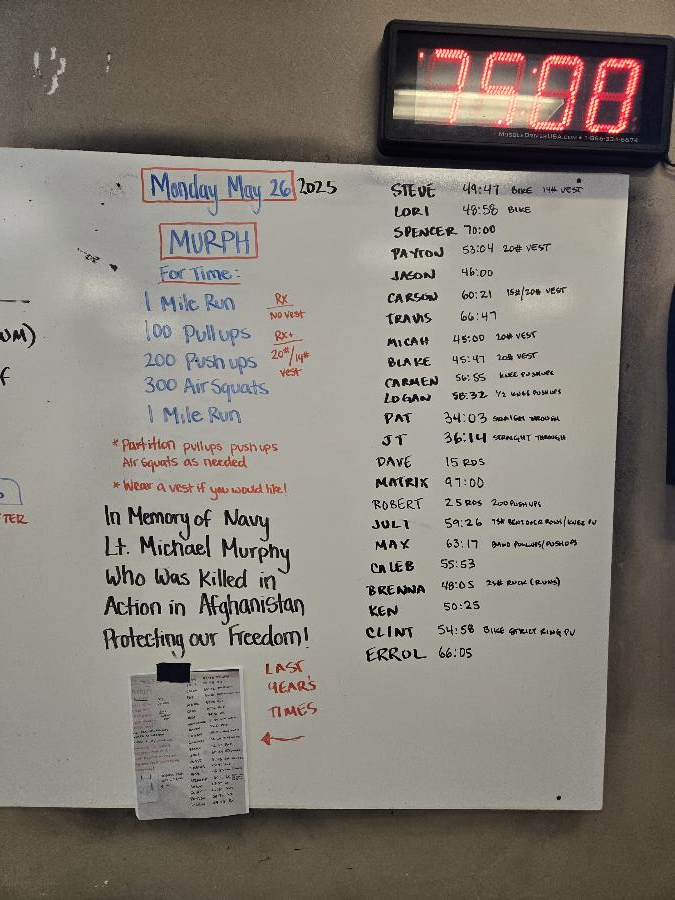 MUSCLEDRIVERUSA.COM • 1-866-324-6674
Monday May 26 2025
MURPH
For Time:
1 Mile Run
100 Pullups
200 Pushups
300 Air Squats
1 Mile Run
RX
NO VEST
RX+
20#/14#
VEST
* Partition pullups pushups
Air Squats as needed
* Wear a vest if you would like!
In Memory of Navy
Lt. Michael Murphy
Who Was Killed in
Action in Afghanistan
Protecting our Freedom!
LAST
YEAR'S
TIMES
STEVE 49:47 BIKE 14# VEST
LORI 48:58 BIKE
SPENCER 70:00
PAYTON 53:04 20# VEST
JASON 46:00
CARSON 60:21 15#/20# VEST
TRAVIS 66:47
MICAH 45:00 20# VEST
BLAKE 45:47 20# VEST
CARMEN 56:55 KNEE PUSHUPS
LOGAN 58:32 1/2 KNEE PUSHUPS
PAT 34:03 STRAIGHT THROUGH
JT 36:14 STRAIGHT THROUGH
DAVE 15 RDS
MATRIX 97:00
ROBERT 25 RDS 200 PUSHUPS
JULI 59:26 75# BENT OVER ROWS/KNEE PU
MAX 63:17 BAND PULLUPS/PUSHUPS
CALEB 55:53
BRENNA 48:05 25# RUCK (RUNS)
KEN 50:25
CLINT 54:58 BIKE STRICT RING PU
ERROL 66:05